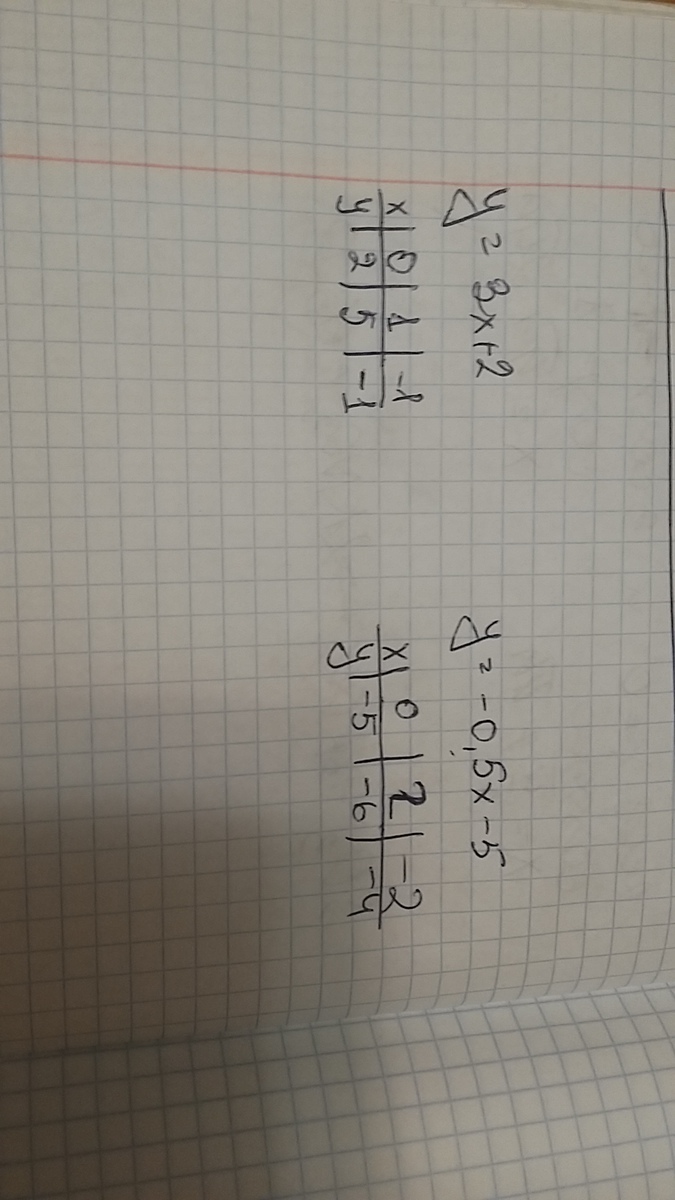 y = 3x+2
x | 0 | 1 | -1
y | 2 | 5 | -1
y = -0,5x-5
x | 0 | 2 | -2
y | -5 | -6 | -4